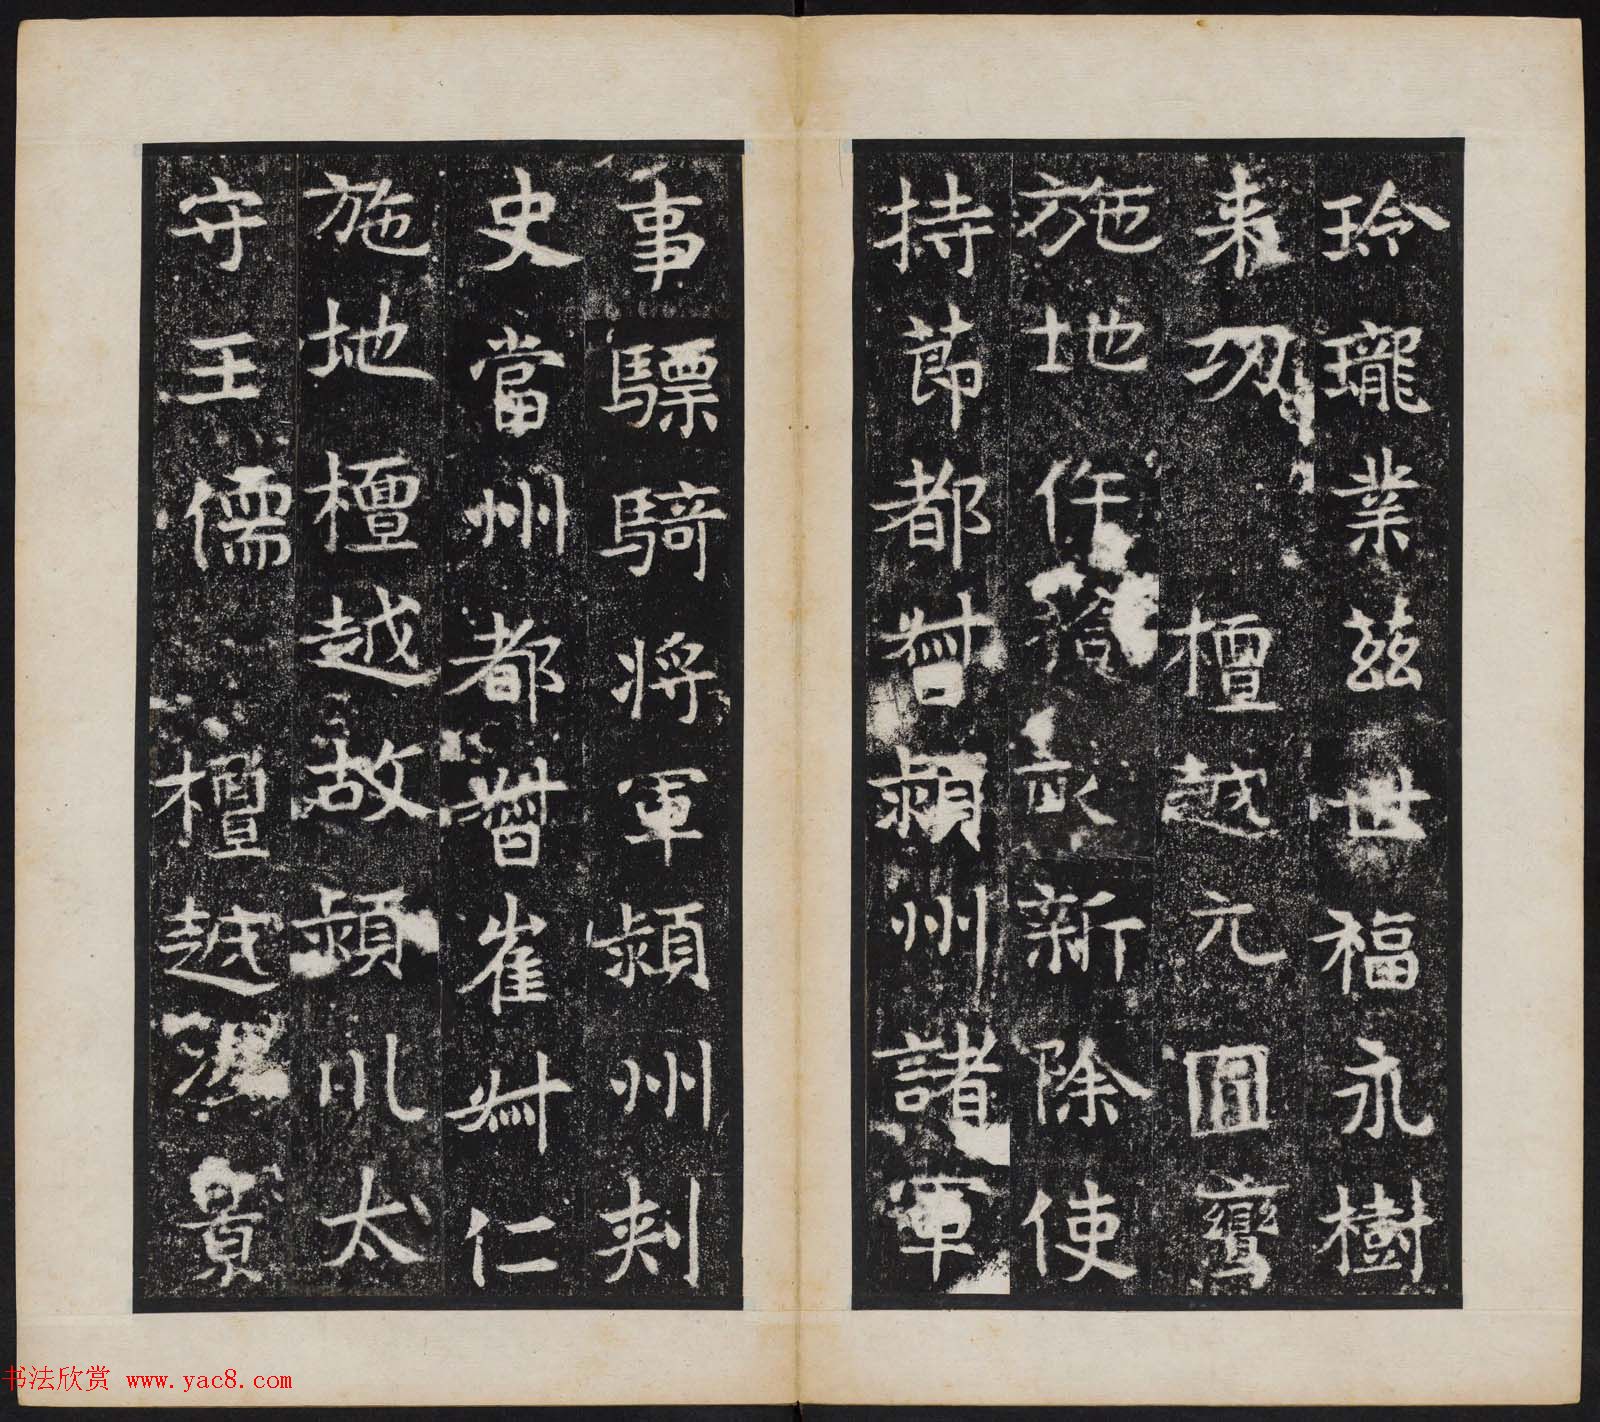 玲瓏業茲世福永樹
来功檀越元圓鸞
施地仵拾畝新除使
持節都督潁州諸軍
事驃騎將軍潁州刾
史當州都督崔叔仁
施地檀越故潁川太
守王儒檀越貴
书法欣赏 www.yac8.com